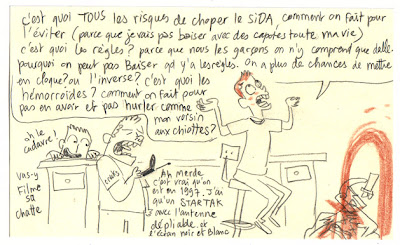 c'est quoi TOUS les risques de choper le SiDA, comment on fait pour
l'éviter (parce que je vais pas baiser avec des capotes toute ma vie)
c'est quoi les règles? parce que nous les garçons on n'y comprend que dalle.
pourquoi on peut pas Baiser qd y'a les règles. On a plus de chances de mettre
en cloque? ou l'inverse? c'est quoi les
hémorroïdes? comment on fait pour
pas en avoir et pas hurler comme
mon voisin
aux chiottes?
oh le
cadavre!
vas-y
Filme
sa
chatte
Ah merde
c'est vrai qu'on
est en 1997. J'ai
qu'un STARTAK
avec l'antenne
dépliable. et
l'écran noir et Blanc